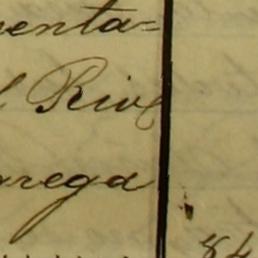 enta=
Rive
rega
84